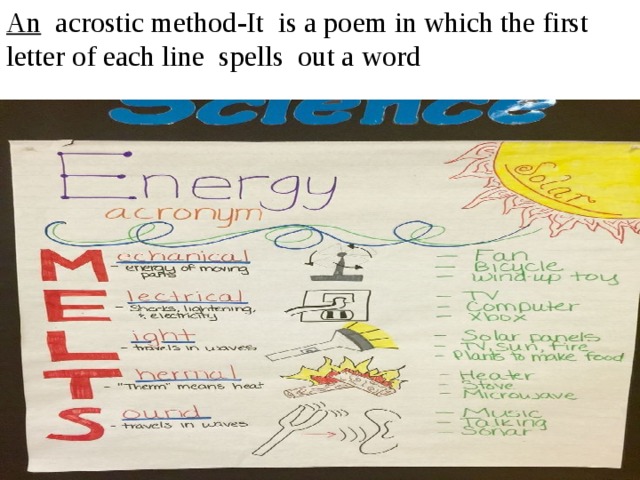 An acrostic method-It is a poem in which the first
letter of each line spells out a word
Science
Energy
acronym
Solar
Mechanical
- energy of moving
parts
- Fan
- Bicycle
- wind-up toy
Electrical
- Shocks, lightening,
& electricity
- TV
- Computer
- Xbox
Light
- travels in waves
- Solar panels
- TV, Sun, Fire
- Plants to make food
Thermal
- "Therm" means heat
- Heater
- Stove
- Microwave
Sound
- travels in waves
- Music
- Talking
- Sonar